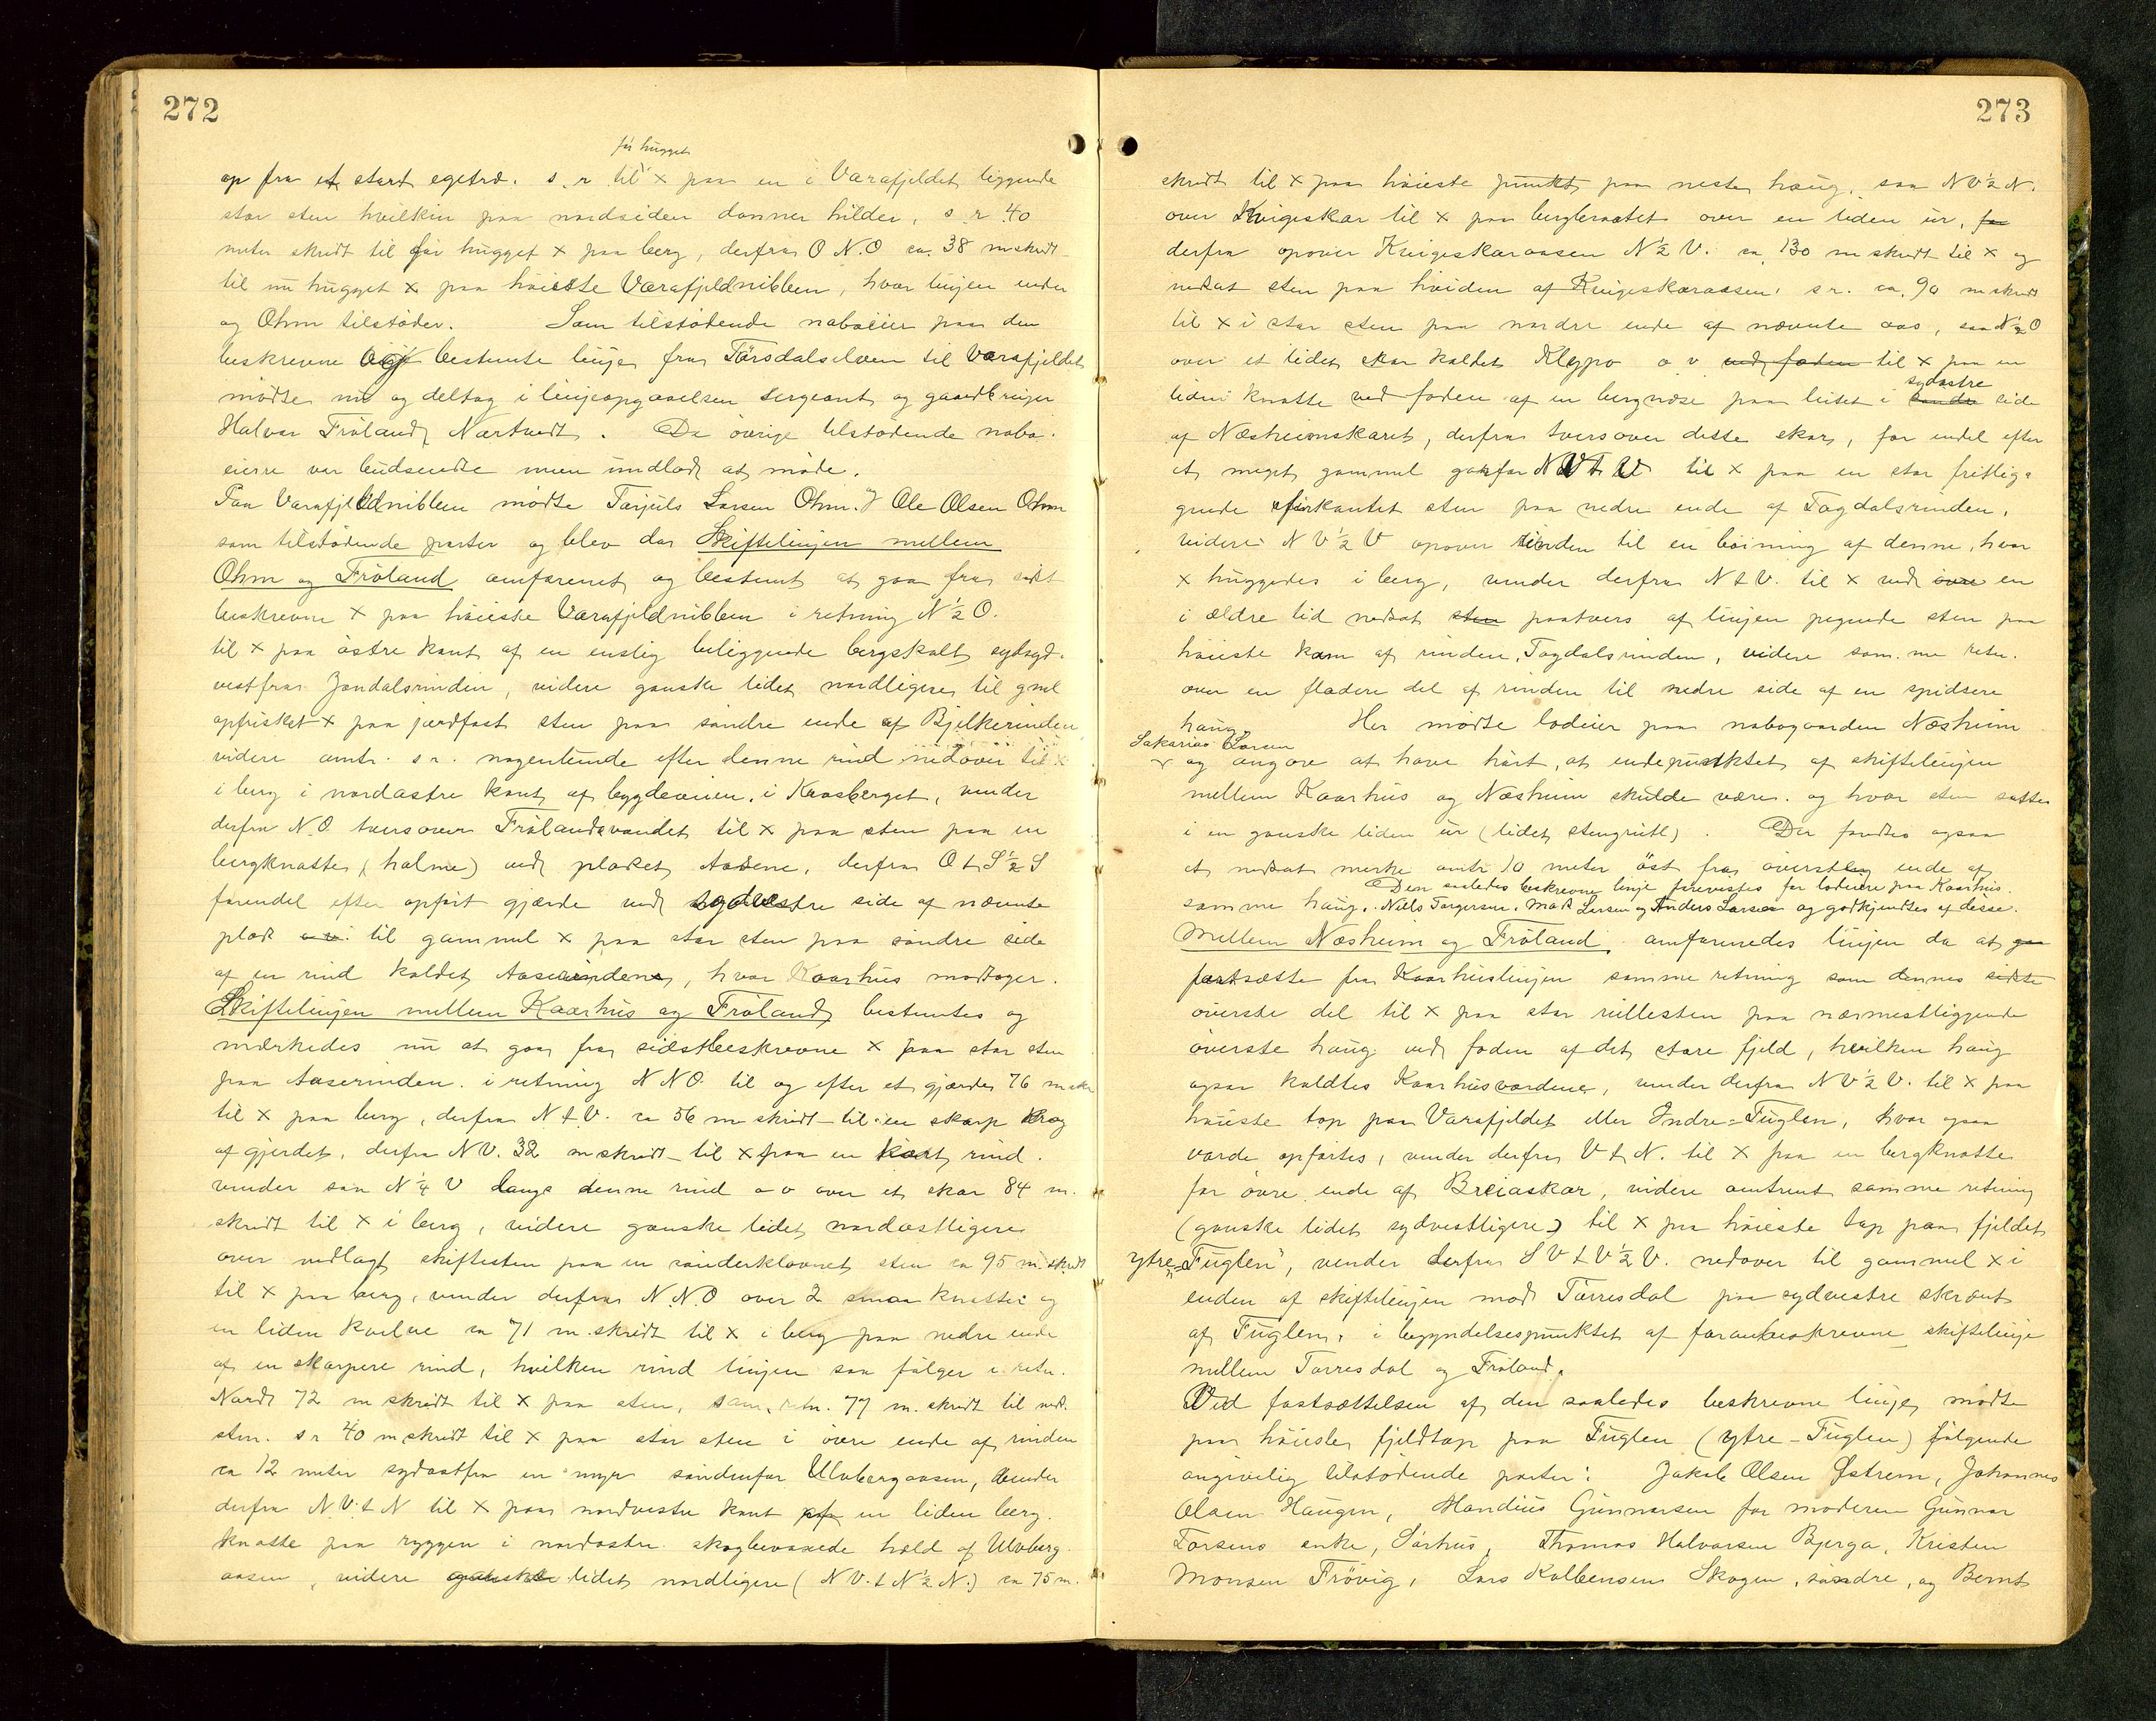 272
før hugget
op fra et stort egetræ. s. r. til x paa en i Varafjeldet liggende
stor sten hvilken paa nordsiden danner hilder, s r 40
meter skridt til før hugget x paa berg, derfra O N.O ca. 38 m skridt
til nu hugget x paa høieste Varafjeldnibben, hvor linjen ender
og Ohm tilstøder. Som tilstødende naboeier paa den
beskrevne og bestemte linje fra Törsdalselven til Varafjeldet
mödte nu og deltog i linjeopgaaelsen sergeant og gaardbruger
Halvor Fröland Nærtvedt. De övrige tilstødende nabo-
eiere var budsendte men undlod at möde.
Paa Varafjeldnibben mödte Tarjuls Larsen Ohm. og Ole Olsen Ohm
som tilstødende parter og blev da Skiftelinjen mellem
Ohm og Fröland omforenet og bestemt at gaa fra sidst
beskrevne x paa høieste Varafjeldnibben i retning N ½ O.
til x paa östre kant af en enslig beliggende bergskolt sydsyd-
vestfra Jondalsrinden, videre ganske lidet nordligere til gml
opfrisket x paa jordfast sten paa söndre ende af Bjelkerinden,
videre omtr. s r. nogenlunde efter denne rind nedover til x
i berg i nordöstre kant af bygdeveien, i Kaasberget, vender
derfra N.O. tversover Frölandsvandet til x paa sten paa en
bergknatte (holme) ved pladset Aasene, derfra O t S ½ S
forendel efter opfört gjærde ved sydvestre side af nævnte
plads o. v. til gammel x paa stor sten paa söndre side
af en rind kaldet Aaserinden, hvor Kaarhus modtager.
Skiftelinjen mellem Kaarhus og Fröland bestemtes og
mærkedes nu at gaa fra sidstbeskrevne x paa stor sten
paa Aaserinden i retning N N O. til og efter et gjærde 76 m skr
til x paa berg, derfra N t V. ca 56 m skridt til en skarp krog
af gjerdet, derfra N V. 32 m skridt til x paa en kort rind.
vender saa N ¼ V langs denne rind o v over et skar 84 m.
skridt til x i berg, videre ganske lidet nordostligere
over nedlagt skiftesten paa en sönderklövnet sten ca 95 m. skridt
til x paa berg, vender derfra N.N.O over 2 smaa knatter og
en liden kvelve ca 71 m. skridt til x i berg paa nedre ende
af en skarpere rind, hvilken rind linjen saa fölger i retn.
Nord 72 m skridt til x paa sten, sam. retn. 77 m. skridt til neds.
sten. s r 40 m skridt til x paa stor sten i övre ende af rinden
ca 12 meter sydostfra en myr söndenfor Ulvbergaasen, vender
derfra N.V. t N til x paa nordvestre kant af en liden berg-
knatte paa ryggen i nordöstre skogbevoxede hæld af Ulvberg-
aasen, videre ganske lidet nordligere (N V. t N ½ N.) ca 75 m.
273
skridt til x paa höieste punkt paa neste haug, saa N V ½ N.
over Kvigeskar til x paa bergbraatet over en liden ur, fo
derfra opover Kvigeskaraasen N ½ V. ca. 130 m skridt til x og
nedsat sten paa höiden af Kvigeskaraasen. s r. ca. 90 m skridt
til x i stor sten paa nordre ende af nævnte aas, saa N ½ O
over et lidet skar kaldet Kleppo o v ved foden til x paa en
liden knatte ved foden af en bergnöse paa leitet i söndre sydöstre side
af Næsheimskaret, derfra tversover dette skar, for endel efter
et meget gammel garfar N V t V til x paa en stor fritlig-
gende firkantet sten paa nedre ende af Togdalsrinden,
videre N V ½ V opover rinden til en böining af denne, hvor
x huggedes i berg, vender derfra N t V. til x ved övre en
i ældre tid nedsat sten paatvers af linjen pegende sten paa
höieste kam af rinden, Togdalsrinden, videre sam. me retn.
over en fladere del af rinden til nedre side af en spidsere
haug. Her mödte lodeier paa nabogaarden Næsheim
Sakarias Larsen
og angav at have hört, at endepunktet af skiftelinjen
mellem Kaarhus og Næsheim skulde være, og hvor sten sattes
i en ganske liden ur (lidet stengrutl). Der fandtes ogsaa
et nedsat merke omtr. 10 meter öst fra överste ende af
Den saaledes beskrevne linje forevistes for lodeiere paa Kaarhus.
samme haug. Niels Torgersen, Mads Larsen og Anders Larsen og godkjendtes af disse.
Mellem Næsheim og Fröland omforenedes linjen da at gaa
fortsætte fra Kaarhuslinjen samme retning som dennes sidste
överste del til x paa stor rullesten paa nærmestliggende
överste haug ved foden af det store fjeld, hvilken haug
ogsaa kaldtes Kaarhusvardene, vender derfra N V ½ V. til x paa
höieste top paa Varafjeldet eller Indre-Fuglen, hvor ogsaa
varde opförtes, vender derfra V t N. til x paa en bergknatte
for övre ende af Breiaskar, videre omtrent samme retning
(ganske lidet sydvestligere) til x paa höieste top paa fjeldet
ytre-Fuglen, vender derfra S V t V ½ V. nedover til gammel x i
enden af skiftelinjen mod Törresdal paa sydvestre skrænt
af Fuglen, i begyndelsespunktet af foranbeskrevne skiftelinje
mellem Torresdal og Fröland.
Ved fastsættelsen af den saaledes beskrevne linje mödte
paa höieste fjeldtop paa Fuglen (ytre-Fuglen) fölgende
angivelig tilstødende parter: Jakob Olsen Østrem, Johannes
Olsen Haugen, Handius Gunnarsen for moderen Gunnar
Torsens enke, Sörhus, Thomas Halvorsen Bjerga, Kristen
Monsen Frövig, Lars Kolbensen Skogen, söndre, og Bernt